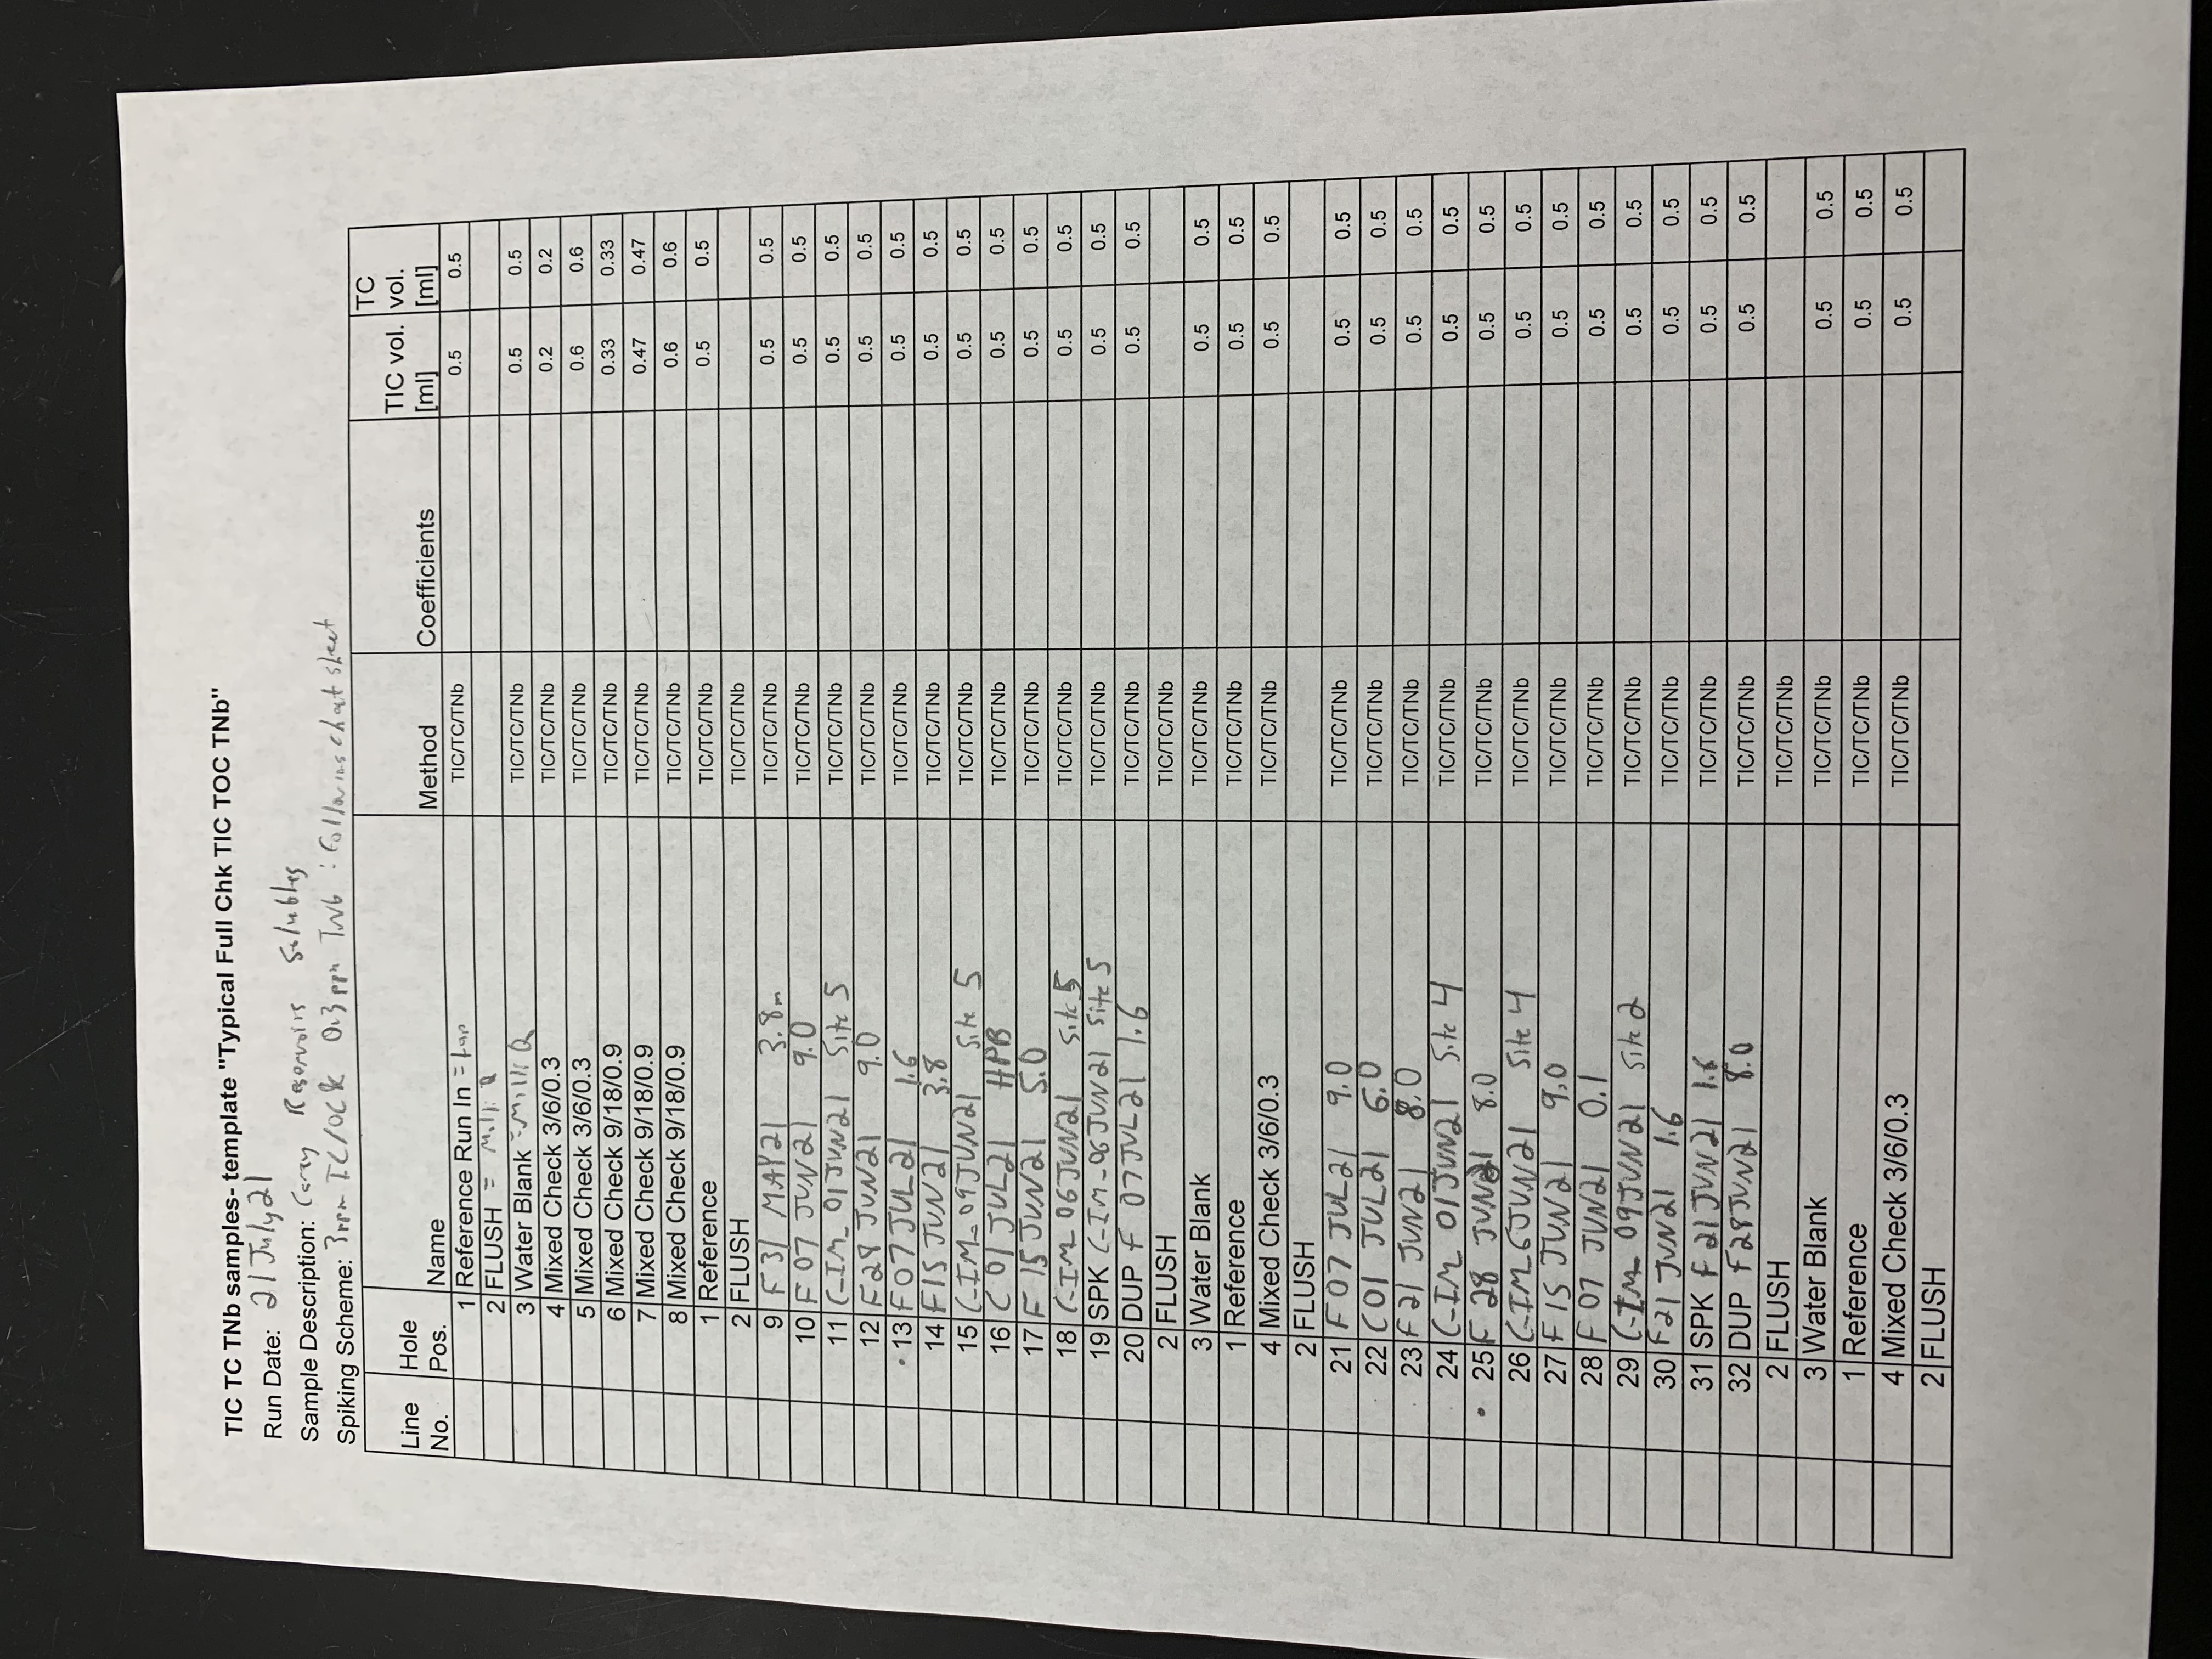 TIC TC TNb samples- template "Typical Full Chk TIC TOC TNb"
Run Date: 21 July 21
Sample Description: Carey Reservoirs Solubles
Spiking Scheme: 3ppm IC/OC & 0.3 ppm TNb : Following cheat sheet
Line No. Hole Pos. Name Method Coefficients TIC vol. [ml] TC vol. [ml]
1 Reference Run In = tap TIC/TC/TNb 0.5 0.5
2 FLUSH = Milli Q
3 Water Blank = Milli Q TIC/TC/TNb 0.5 0.5
4 Mixed Check 3/6/0.3 TIC/TC/TNb 0.2 0.2
5 Mixed Check 3/6/0.3 TIC/TC/TNb 0.6 0.6
6 Mixed Check 9/18/0.9 TIC/TC/TNb 0.33 0.33
7 Mixed Check 9/18/0.9 TIC/TC/TNb 0.47 0.47
8 Mixed Check 9/18/0.9 TIC/TC/TNb 0.6 0.6
1 Reference TIC/TC/TNb 0.5 0.5
2 FLUSH TIC/TC/TNb
9 F 31 MAY21 3.8m TIC/TC/TNb 0.5 0.5
10 F 07 JUN21 9.0 TIC/TC/TNb 0.5 0.5
11 C-IM_01JUN21 Site 5 TIC/TC/TNb 0.5 0.5
12 F28 JUN21 9.0 TIC/TC/TNb 0.5 0.5
13 F07 JUL21 1.6 TIC/TC/TNb 0.5 0.5
14 F15 JUN21 3.8 TIC/TC/TNb 0.5 0.5
15 C-IM_09JUN21 Site 5 TIC/TC/TNb 0.5 0.5
16 C 01 JUL21 HPB TIC/TC/TNb 0.5 0.5
17 F 15 JUN21 5.0 TIC/TC/TNb 0.5 0.5
18 C-IM_06JUN21 Site 5 TIC/TC/TNb 0.5 0.5
19 SPK C-IM-06JUN21 Site 5 TIC/TC/TNb 0.5 0.5
20 DUP F 07JUL21 1.6 TIC/TC/TNb 0.5 0.5
2 FLUSH TIC/TC/TNb
3 Water Blank TIC/TC/TNb 0.5 0.5
1 Reference TIC/TC/TNb 0.5 0.5
4 Mixed Check 3/6/0.3 TIC/TC/TNb 0.5 0.5
2 FLUSH
21 F 07 JUL21 9.0 TIC/TC/TNb 0.5 0.5
22 C01 JUL21 6.0 TIC/TC/TNb 0.5 0.5
23 F 21 JUN21 8.0 TIC/TC/TNb 0.5 0.5
24 C-IM 01JUN21 Site 4 TIC/TC/TNb 0.5 0.5
25 F 28 JUN21 8.0 TIC/TC/TNb 0.5 0.5
26 C-IM_6JUN21 Site 4 TIC/TC/TNb 0.5 0.5
27 F 15 JUN21 9.0 TIC/TC/TNb 0.5 0.5
28 F 07 JUN21 0.1 TIC/TC/TNb 0.5 0.5
29 C-IM_09JUN21 Site 2 TIC/TC/TNb 0.5 0.5
30 F21 JUN21 1.6 TIC/TC/TNb 0.5 0.5
31 SPK F 21JUN21 1.6 TIC/TC/TNb 0.5 0.5
32 DUP F28JUN21 8.0 TIC/TC/TNb 0.5 0.5
2 FLUSH TIC/TC/TNb
3 Water Blank TIC/TC/TNb 0.5 0.5
1 Reference TIC/TC/TNb 0.5 0.5
4 Mixed Check 3/6/0.3 TIC/TC/TNb 0.5 0.5
2 FLUSH